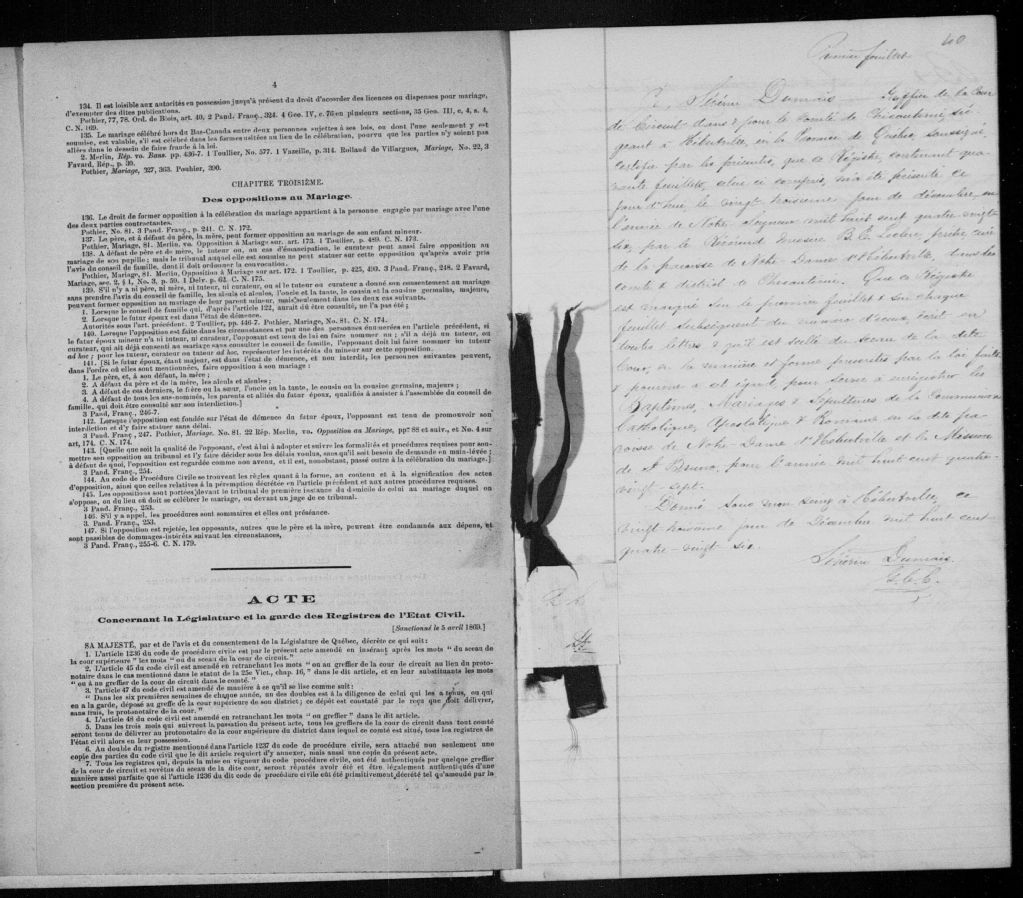 4
134. Il est loisible aux autorités en possession jusqu'à présent du droit d'accorder des licences ou dispenses pour mariage,
d'exempter des dites publications.
Pothier, 77, 78. Ord. de Blois, art. 40, 2 Pand. Franç., 324. 4 Geo. IV, c. 76 en plusieurs sections, 35 Geo. III, c. 4, s. 4.
C. N. 169.
135. Le mariage célébré hors du Bas-Canada entre deux personnes sujettes à ses lois, ou dont l'une seulement y est
soumise, est valable, s'il est célébré dans les formes usitées au lieu de la célébration, pourvu que les parties n'y soient pas
allées dans le dessein de faire fraude à la loi.
2. Merlin, Rép. vo. Bans. pp. 436-7. 1 Toullier, No. 577. 1 Vazeille, p. 314. Rolland de Villargues, Mariage, No. 22, 3
Favard, Rép., p. 39.
Pothier, Mariage, 327, 363. Pouhier, 390.
CHAPITRE TROISIÈME.
Des oppositions au Mariage.
136. Le droit de former opposition à la célébration du mariage appartient à la personne engagée par mariage avec l'une
des deux parties contractantes.
Pothier, No. 81. 3 Pand. Franç., p. 241. C. N. 172.
137. Le père, et à défaut du père, la mère, peut former opposition au mariage de son enfant mineur.
Pothier, Mariage, 81. Merlin, vo. Opposition à Mariage sur. art. 173. 1 Toullier, p. 489. C. N. 173.
138. A défaut de père et de mère, le tuteur ou, au cas d'émancipation, le curateur peut aussi faire opposition au
mariage de son pupille; mais le tribunal auquel elle est soumise ne peut statuer sur cette opposition qu'après avoir pris
l'avis du conseil de famille, dont il doit ordonner la convocation.
Pothier, Mariage, 81. Merlin, Opposition à Mariage sur art. 172. 1 Toullier, p. 425, 493. 3 Pand. Franç., 248. 2 Favard,
Mariage, sec. 2, § 1, No. 3, p. 59. 1 Delv. p. 62. C. N. 175.
139. S'il n'y a ni père, ni mère, ni tuteur, ni curateur, ou si le tuteur ou curateur a donné son consentement au mariage
sans prendre l'avis du conseil de famille, les aïeuls et aïeules, l'oncle et la tante, le cousin et la cousine germains, majeurs,
peuvent former opposition au mariage de leur parent mineur, mais seulement dans les deux cas suivants.
1. Lorsque le conseil de famille qui, d'après l'article 122, aurait dû être consulté, ne l'a pas été;
2. Lorsque le futur époux est dans l'état de démence.
Autorités sous l'art. précédent. 2 Toullier, pp. 446-7. Pothier, Mariage, No. 81. C. N. 174.
140. Lorsque l'opposition est faite dans les circonstances et par une des personnes énumérées en l'article précédent, si
le futur époux mineur n'a ni tuteur, ni curateur, l'opposant est tenu de lui en faire nommer un; s'il a déjà un tuteur, ou
curateur, qui ait déjà consenti au mariage sans consulter le conseil de famille, l'opposant doit lui faire nommer un tuteur
ad hoc; pour les tuteur, curateur ou tuteur ad hoc, représenter les intérêts du mineur sur cette opposition.
141. [Si le futur époux, étant majeur, est dans l'état de démence, et non interdit, les personnes suivantes peuvent,
dans l'ordre où elles sont mentionnées, faire opposition à son mariage:
1. Le père, et, à son défaut, la mère;
2. A défaut du père et de la mère, les aïeuls et aïeules;
3. A défaut de ces derniers, le frère ou la sœur, l'oncle ou la tante, le cousin ou la cousine germains, majeurs;
4. A défaut de tous les sus-nommés, les parents et alliés du futur époux, qualifiés à assister à l'assemblée du conseil de
famille, qui doit être consulté sur son interdiction.]
3 Pand. Franç., 246-7.
142. Lorsque l'opposition est fondée sur l'état de démence du futur époux, l'opposant est tenu de promouvoir son
interdiction et d'y faire statuer sans délai.
3 Pand. Franç., 247. Pothier, Mariage. No. 81. 22 Rép. Merlin, vo. Opposition au Mariage, pp? 88 et suiv., et No. 4 sur
art, 174. C. N. 174.
143. [Quelle que soit la qualité de l'opposant, c'est à lui à adopter et suivre les formalités et procédures requises pour sou-
mettre son opposition au tribunal et l'y faire décider sous les délais voulus, sans qu'il soit besoin de demande en main-lévée;
à défaut de quoi, l'opposition est regardée comme non avenue, et il est, nonobstant, passé outre à la célébration du mariage.]
3 Pand. Franç., 254.
144. Au code de Procédure Civile se trouvent les règles quant à la forme, au contenu et à la signification des actes
d'opposition, ainsi que celles relatives à la péremption décrétée en l'article précédent et aux autres procédures requises.
145. Les oppositions sont portées devant le tribunal de première instance du domicile de celui au mariage duquel on
s'oppose, ou du lieu où doit se célébrer le mariage, ou devant un juge de ce tribunal.
3 Pand. Franç., 253.
146. S'il y a appel, les procédures sont sommaires et elles ont préséance.
3. Pand. Franç., 253.
147. Si l'opposition est rejetée, les opposants, autres que le père et la mère, peuvent être condamnés aux dépens, et
sont passibles de dommages-intérêts suivant les circonstances,
3 Pand. Franç., 255-6. C. N. 179.
ACTE
Concernant la Législature et la garde des Registres de l'Etat Civil.
[Sanctionné le 5 avril 1869.]
SA MAJESTÉ, par et de l'avis et du consentement de la Législature de Québec, décrète ce qui suit:
1. L'article 1236 du code de procédure civile est par le présent acte amendé en insérant après les mots " du sceau de
la cour supérieure " les mots " ou du sceau de la cour de circuit."
2. L'article 45 du code civil est amendé en retranchant les mots " ou au greffier de la cour de circuit au lieu du proto-
notaire dans le cas mentionné dans le statut de la 25e Vict., chap. 16, " dans le dit article, et en leur substituants les mots
" ou à un greffier de la cour de circuit dans le comté. "
3. l'article 47 du code civil est amendé de manière à ce qu'il se lise comme suit:
" Dans les six premières semaines de chaque année, un des doubles est à la diligence de celui qui les a tenus, ou qui
en a la garde, déposé au greffe de la cour supérieure de son district; ce dépôt est constaté par le reçu que doit délivrer,
sans frais, le protonotaire de la cour."
4. L'article 48 du code civil est amendé en retranchant les mots " ou greffier " dans le dit article.
5. Dans les trois mois qui suivront la passation du présent acte, tous les greffiers de la cour de circuit dans tout comté
seront tenus de délivrer au protonotaire de la cour supérieure du district dans lequel ce comté est situé, tous les registres de
l'état civil alors en leur possession.
6. Au double du registre mentionné dans l'article 1237 du code de procédure civile, sera attaché non seulement une
copie des parties du code civil que le dit article requiert d'y annexer, mais aussi une copie du présent acte.
7. Tous les registres qui, depuis la mise en vigueur du code procédure civile, ont été authentiqués par quelque greffier
de la cour de circuit et revêtus du sceau de la dite cour, seront réputés avoir été et être légalement authentiqués d'une
manière aussi parfaite que si l'article 1236 du dit code de procédure civile eût été primitivement décrété tel qu'amendé par la
section première du présent acte.
40
Premier feuillet
Je, Séverin Dumais Greffier de la Cour
de Circuit dans & pour le Comté de Chicoutimi, sié-
geant à Hébertville, en la Province de Québec, soussigné,
certifie par les présentes, que ce Régistre, contenant qua-
rante feuillets, celui ci compris, m'a été présenté ce
jour d'hui le vingt neuvième jour de décembre, en
l'année de Notre Seigneur mil huit cent quatre vingt
six, par le Révérend Messire B. E. Leclerc, prêtre curé
de la paroisse de Notre-Dame d'Hébertville, dans les
comté & district de Chicoutimi. Que ce Régistre
est marqué sur le premier feuillet & sur chaque
feuillet subséquent du numéro d'iceux, écrit en
toutes lettres & qu'il est scellé du sceau de la dite
Cour, en la manière et forme prescrites par la loi faite
pourvue & est destiné pour servir à enregistrer les
Baptêmes, Mariages & Sépultures de la Communion
Catholique, Apostolique & Romaine en la dite pa-
roisse de Notre-Dame d'Hébertville et la Mission
de St Bruno, pour l'année mil huit cent quatre-
vingt-sept.
Donné sous mon seing à Hébertville, ce
vingt-neuvième jour de Décembre mil huit cent
quatre-vingt six.
Séverin Dumais
G.C.C.